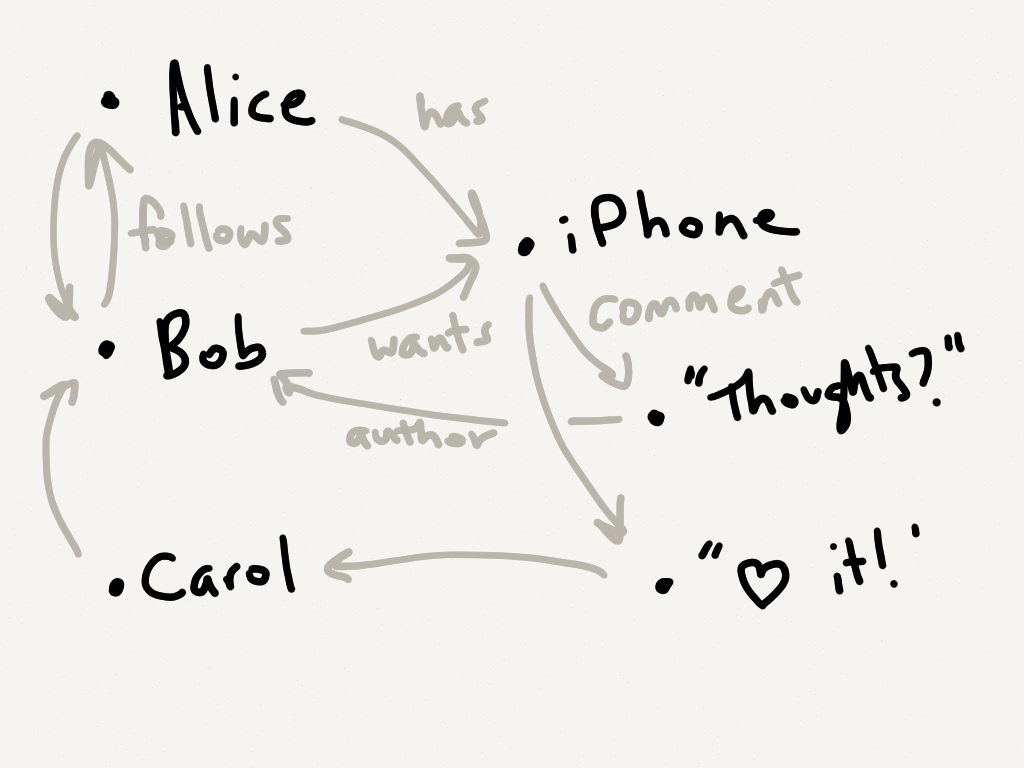 Alice
has
follows
iPhone
comment
Bob
wants
"Thoughts?"
author
Carol
"♡ it!'